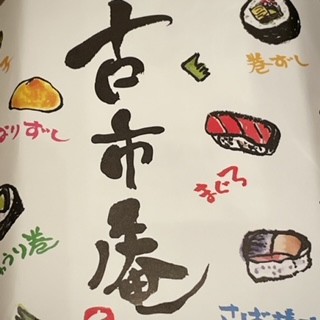 古市庵
巻ずし
なりずし
まぐろ
ゅうり巻
さば棒